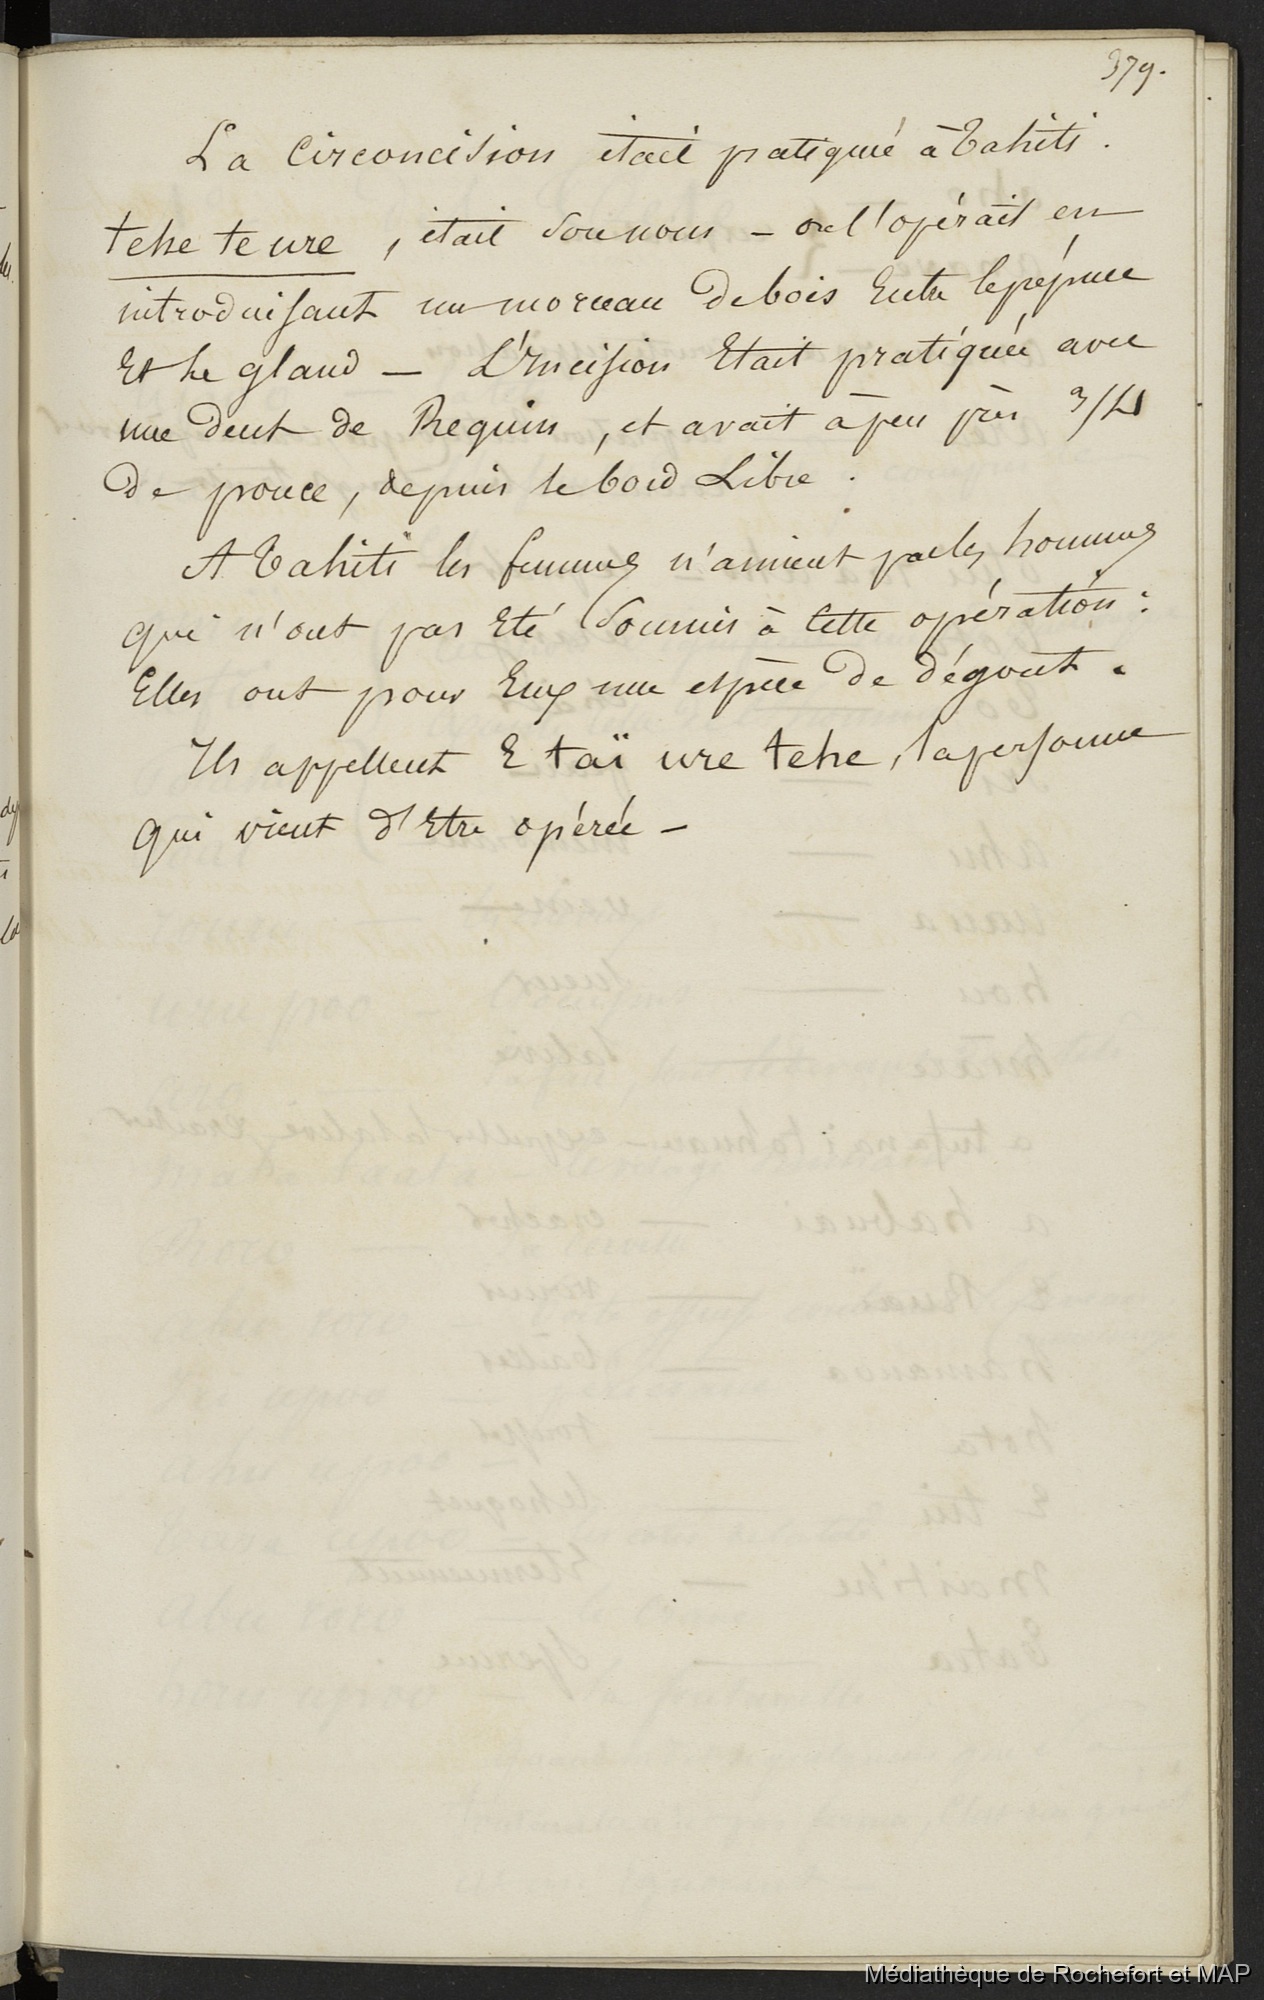 379.
La Circoncision était pratiquée à Tahiti.
tehe te ure, était son nom - on l'opérait en
introduisant un morceau de bois Entre le prépuce
Et le gland - L'Incision Etait pratiquée avec
une dent de Requin, et avait à peu près 3/4
de pouce, depuis le bord Libre.
A Tahiti les femmes n'aiment pas les hommes
qui n'ont pas Eté Soumis à Cette opération :
Elles ont pour Eux une espèce de dégoût.
Ils appellent E taï ure tehe, la personne
qui vient d'Etre opérée -
Médiathèque de Rochefort et MAP